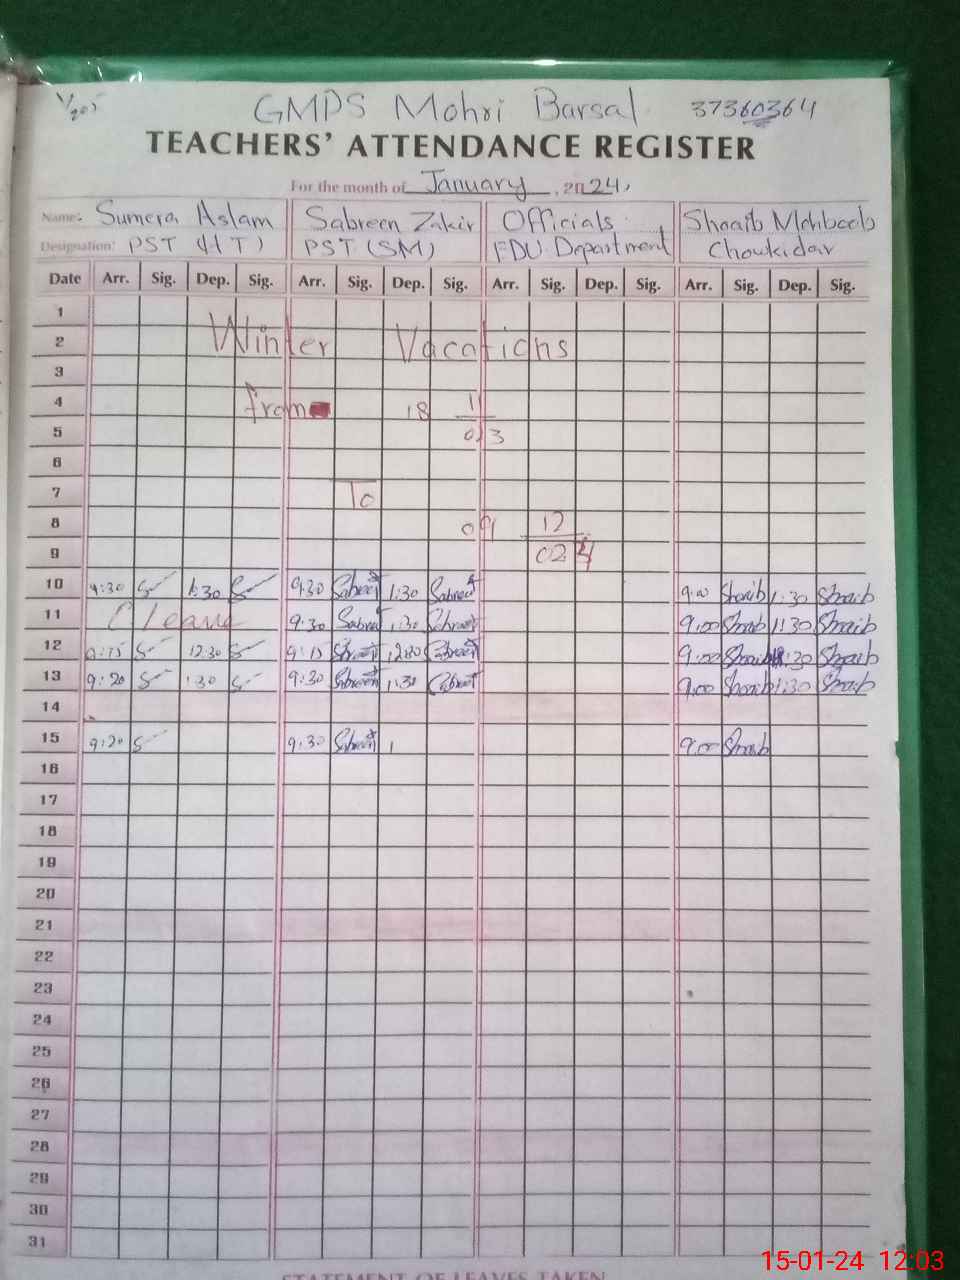 GMPS Mohri Barsal 37360364
TEACHERS' ATTENDANCE REGISTER
For the month of January, 2024,
Name: Sumera Aslam Sabreen Zakir Officials Shoaib Mehboob
Designation: PST (HT) PST (SM) EDU. Department Choukidar
Date Arr. Sig. Dep. Sig. Arr. Sig. Dep. Sig. Arr. Sig. Dep. Sig. Arr. Sig. Dep. Sig.
1
2 Winter Vacations
3
4 from 18 11
5 023
6
7 To
8 09 12
9 024
10 9:30 1:30 9:30 Sabreen 1:30 Sabreen 9:00 Shoaib 1:30 Shoaib
11 C leave 9:30 Sabreen 1:30 Sabreen 9:00 Shoaib 1:30 Shoaib
12 9:15 12:30 9:15 Sabreen Sabreen 9:00 Shoaib Shoaib
13 9:20 1:30 9:30 Sabreen 1:30 Sabreen 9:00 Shoaib 1:30 Shoaib
14
15 9:20 9:30 Sabreen 9:00 Shoaib
16
17
18
19
20
21
22
23
24
25
26
27
28
29
30
31
STATEMENT OF LEAVES TAKEN
15-01-24 12:03